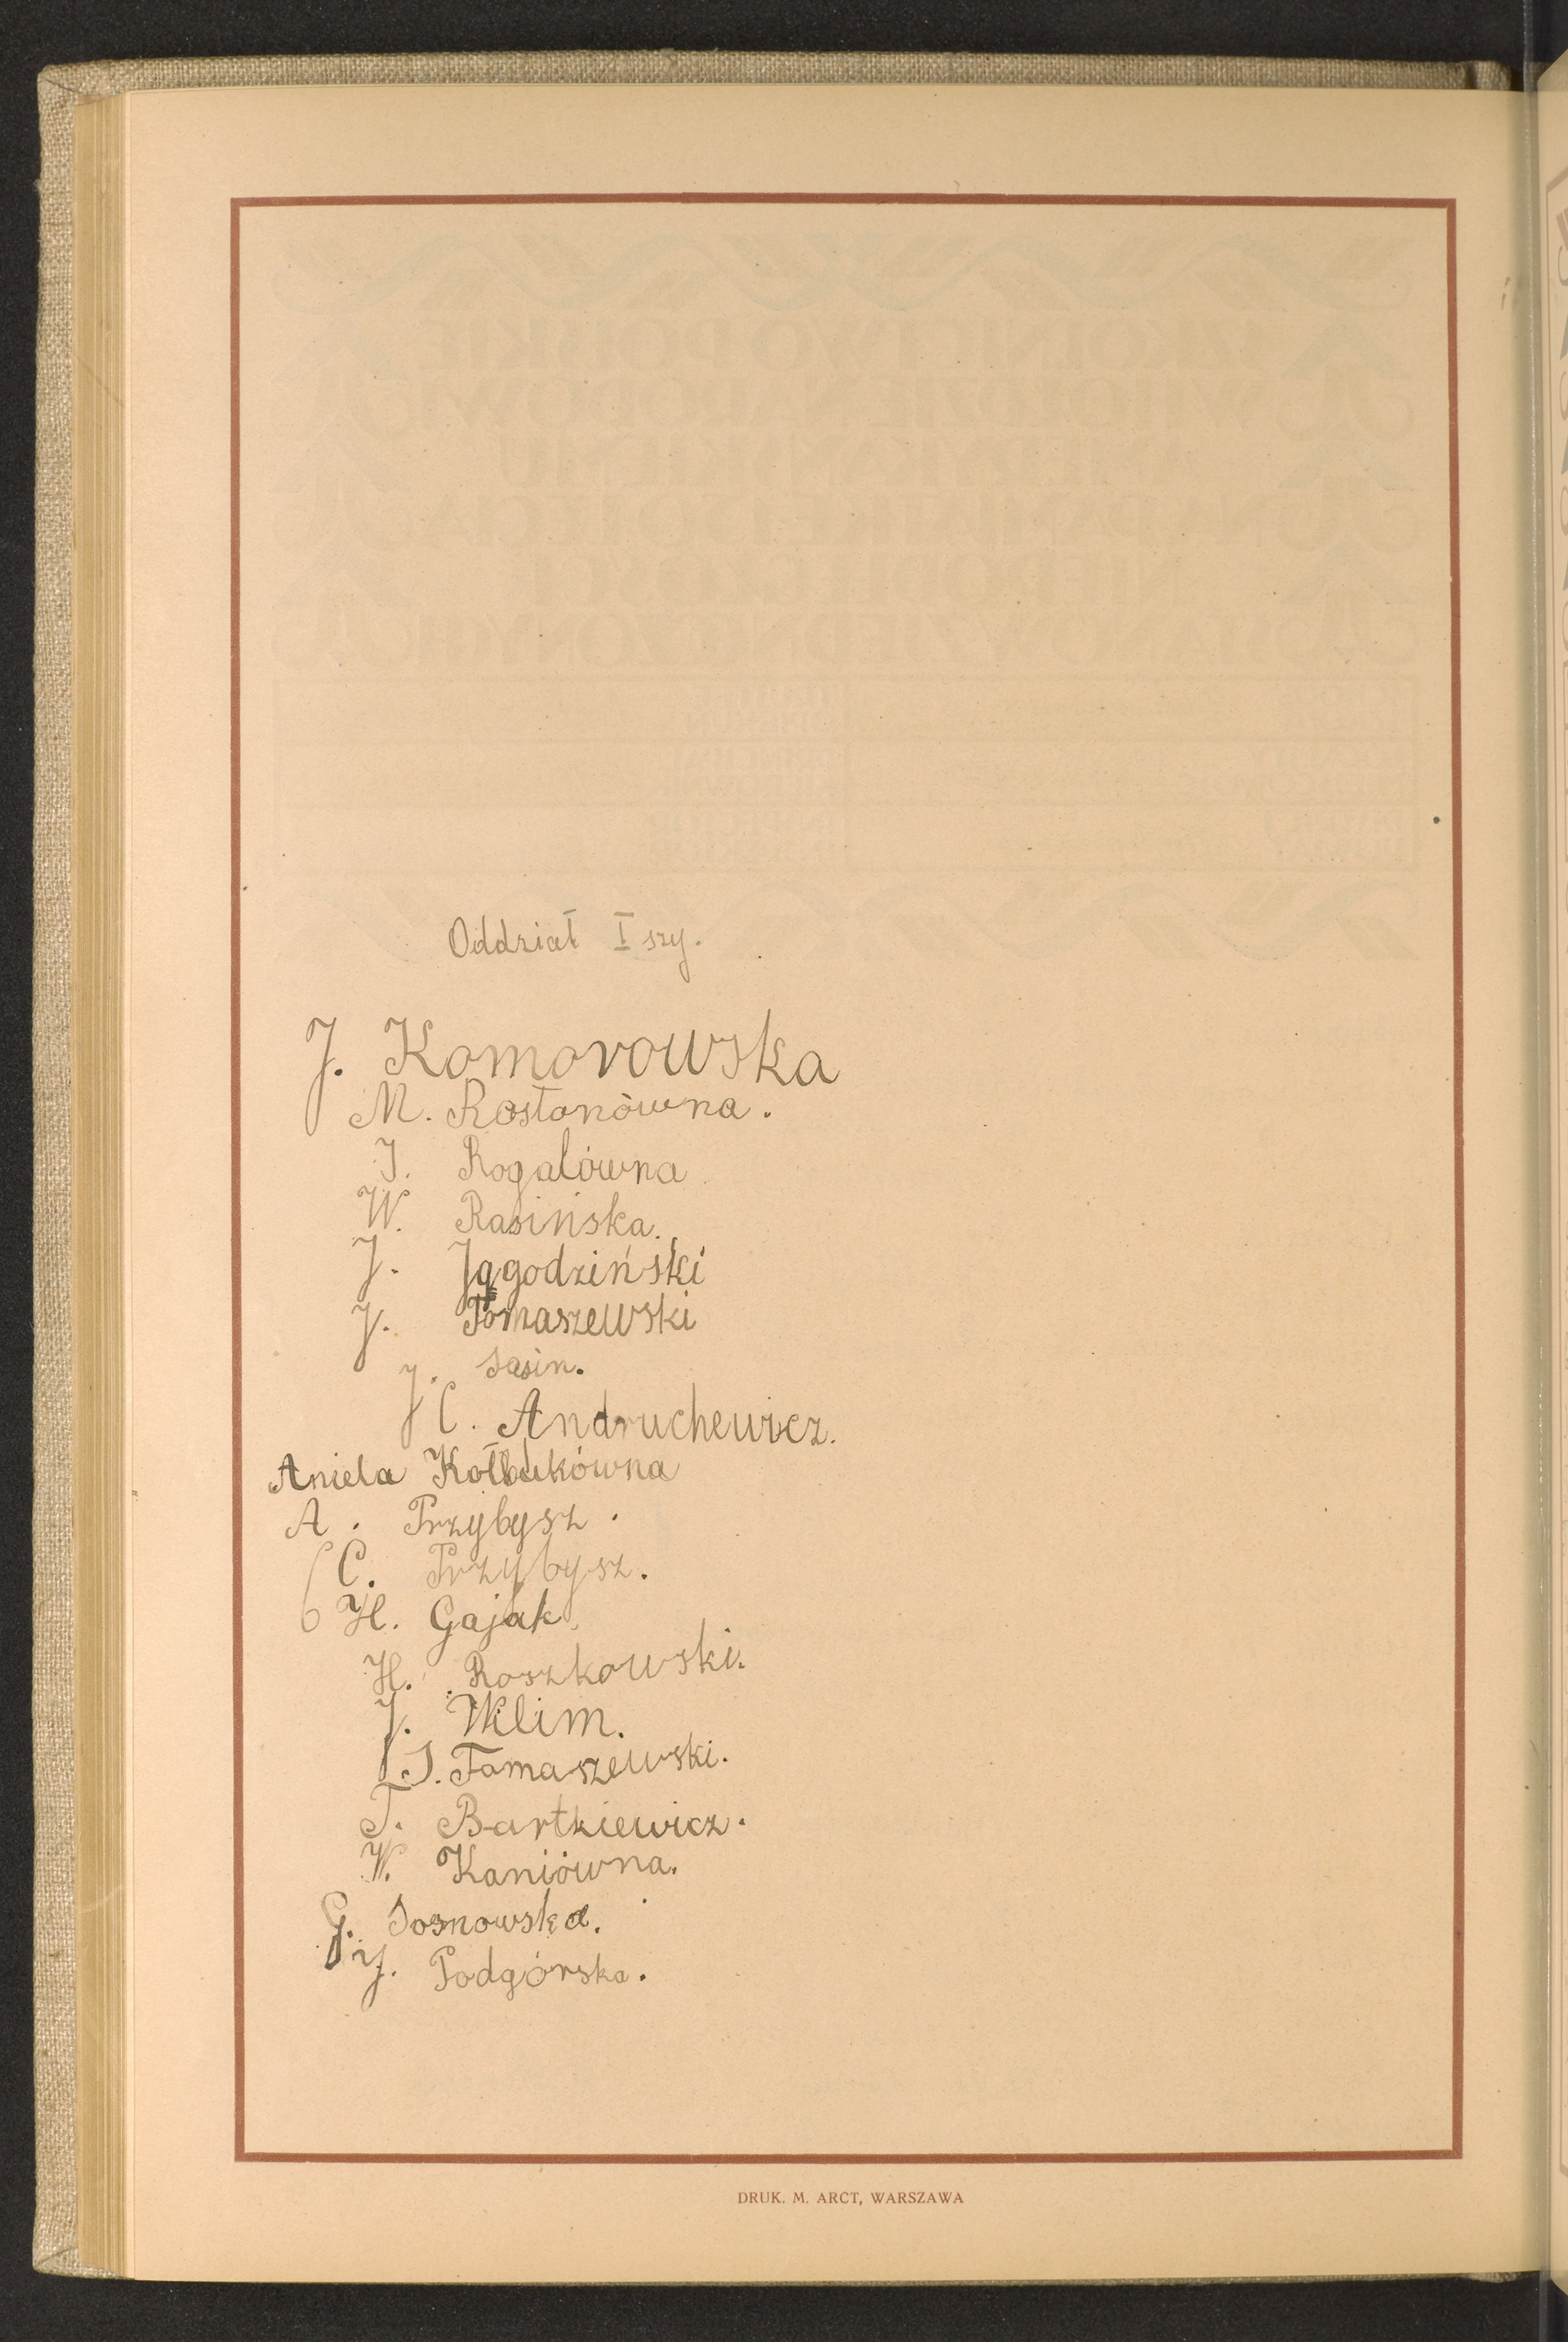 Oddział I szy.
J. Komorowska
M. Rostonówna.
J. Rogalówna
W. Rasińska.
J. Jagodziński
J. Tomaszewski
J. Sasin.
C. Andruchewicz.
Aniela Kołbukówna
A. Przybysz.
C. Przybysz.
H. Gajak.
H. Roszkowski.
J. Klim.
J. Tomaszewski.
T. Bartkiewicz.
W. Kaniówna.
G. Sosnowska.
J. Podgórska.
DRUK. M. ARCT, WARSZAWA